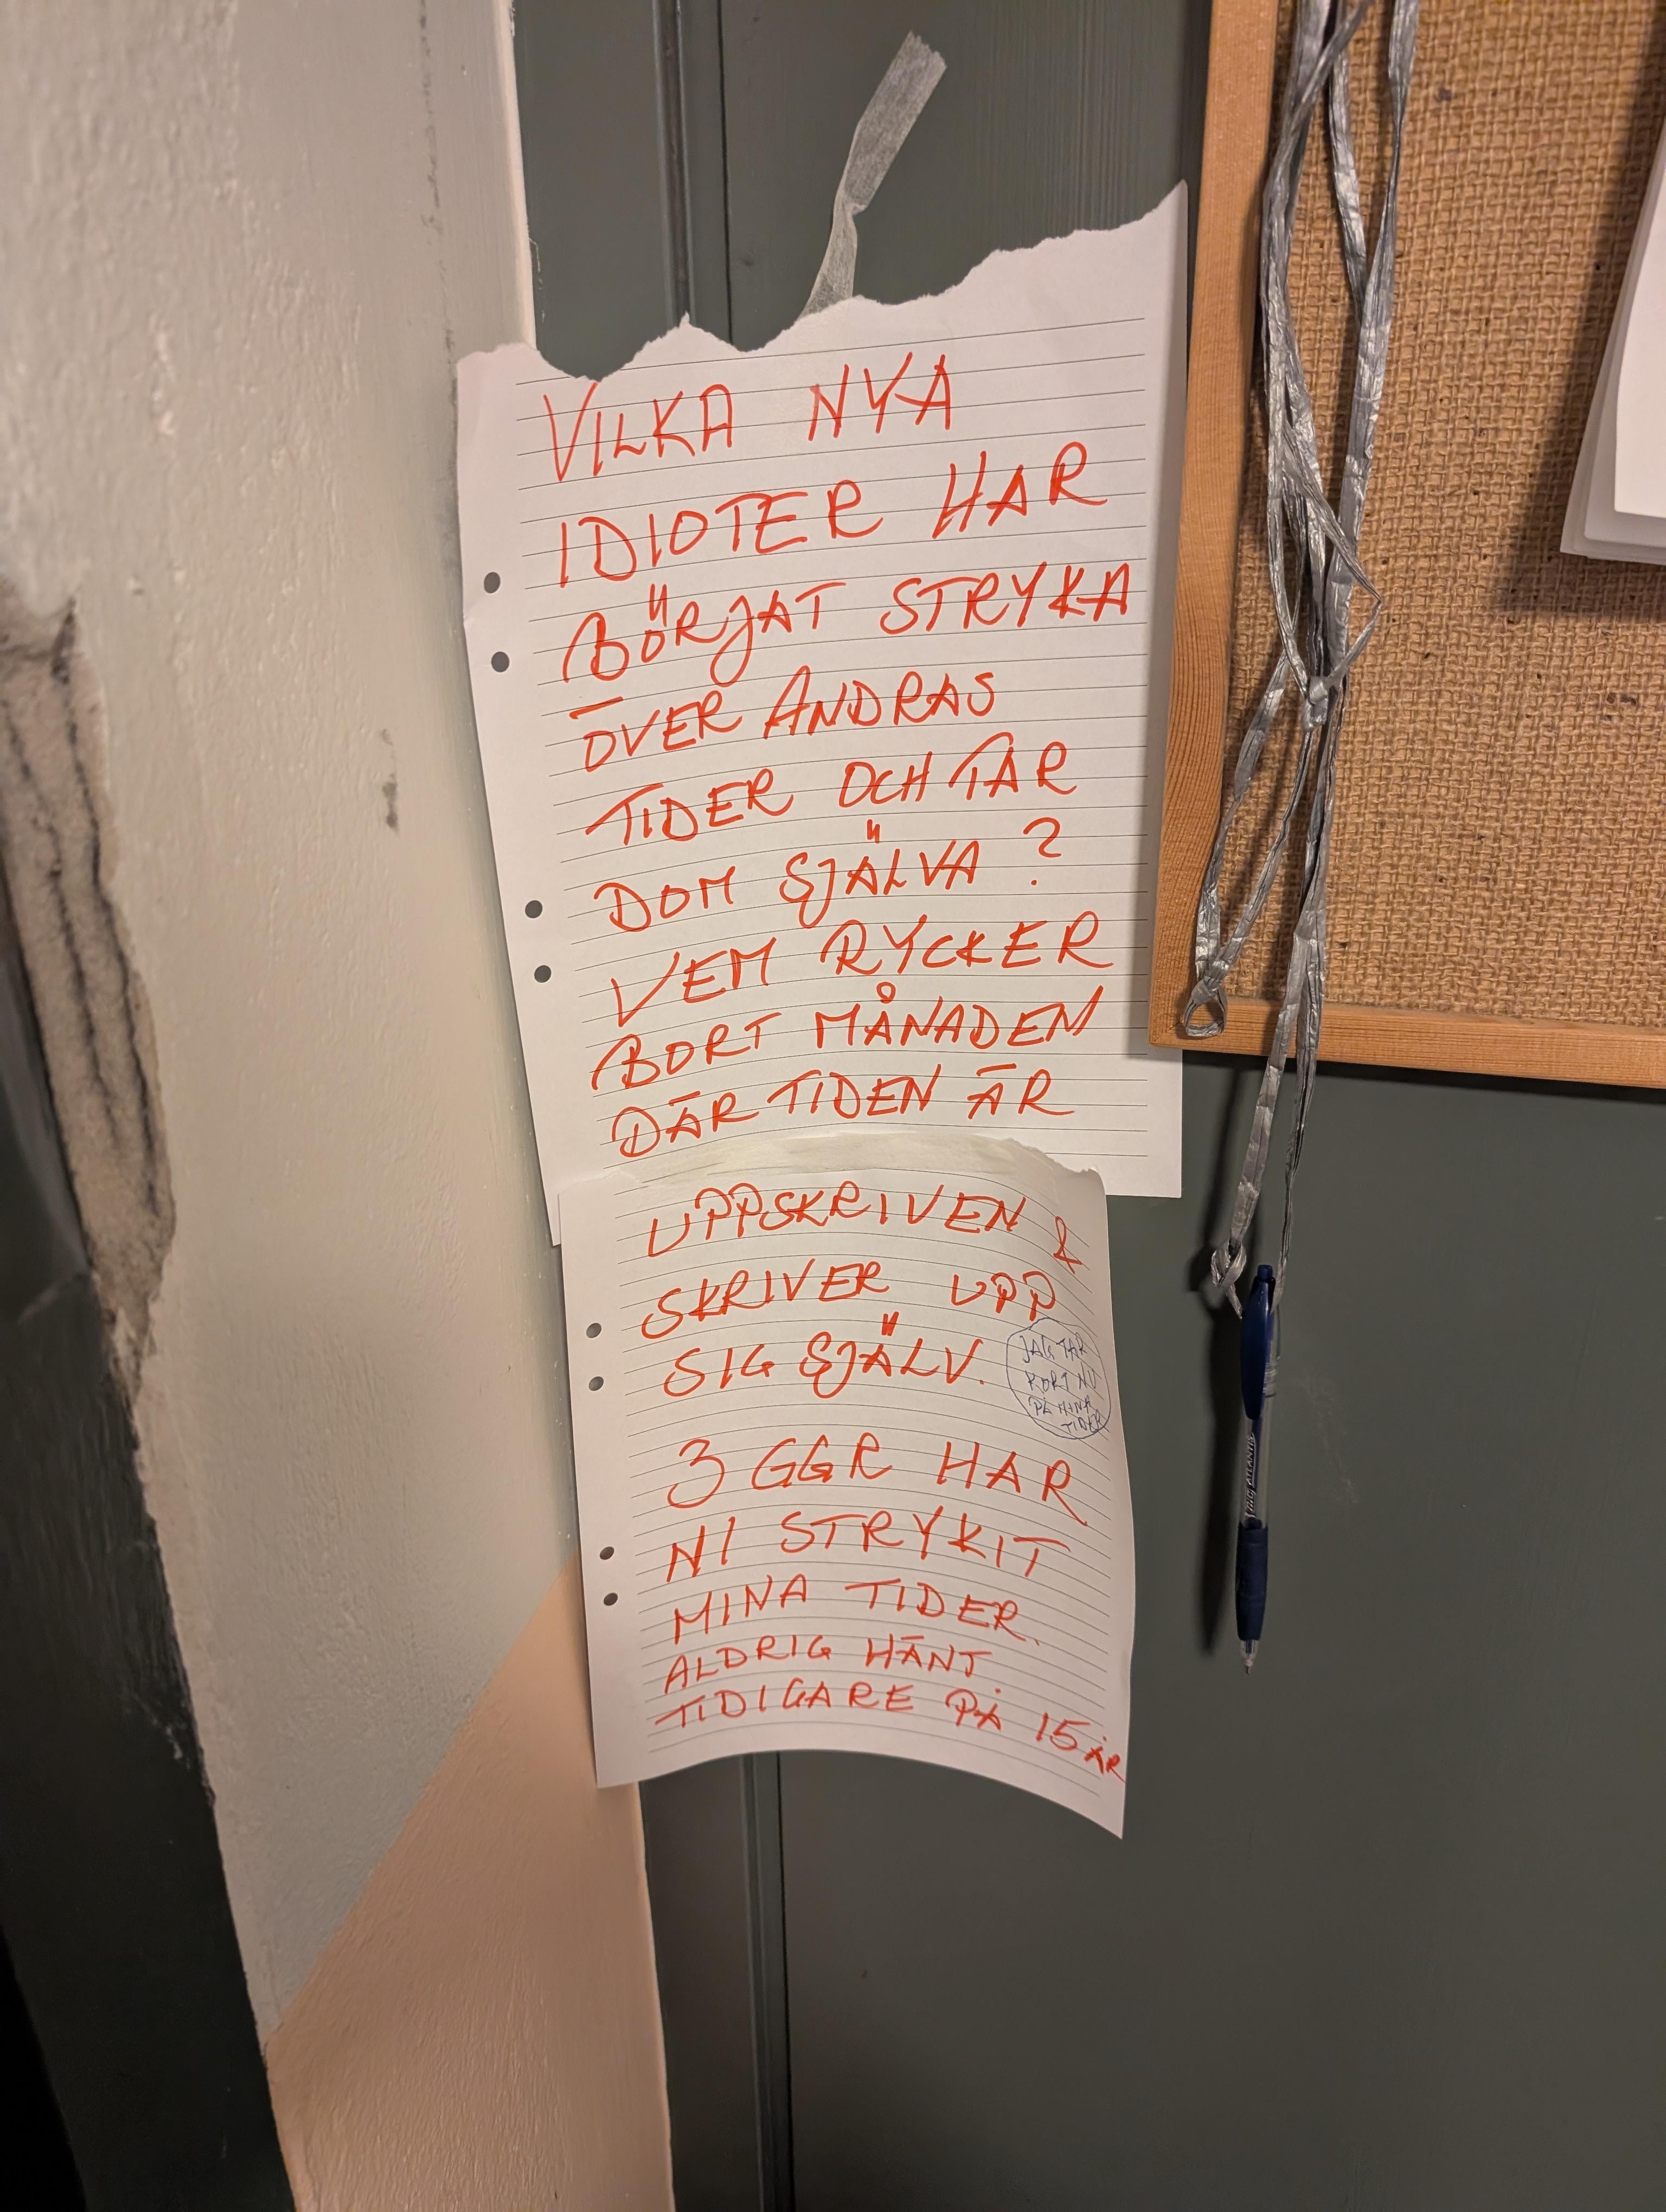 VILKA NYA
IDIOTER HAR
BÖRJAT STRYKA
ÖVER ANDRAS
TIDER OCH TAR
DOM SJÄLVA?
VEM RYCKER
BORT MÅNADEN
DÄR TIDEN ÄR
UPPSKRIVEN &
SKRIVER UPP
SIG SJÄLV.
JAG TAR
KORT NU
PÅ MINA
TIDER
3 GGR HAR
NI STRYKIT
MINA TIDER.
ALDRIG HÄNT
TIDIGARE PÅ 15 ÅR
ATLANTIS